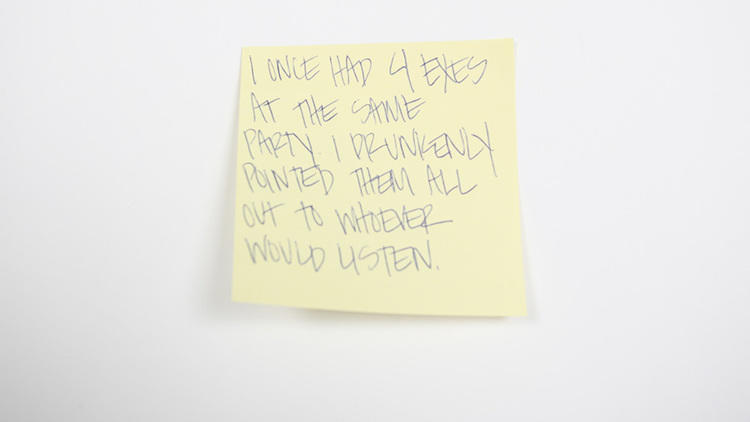 I ONCE HAD 4 EXES
AT THE SAME
PARTY. I DRUNKENLY
POINTED THEM ALL
OUT TO WHOEVER
WOULD LISTEN.